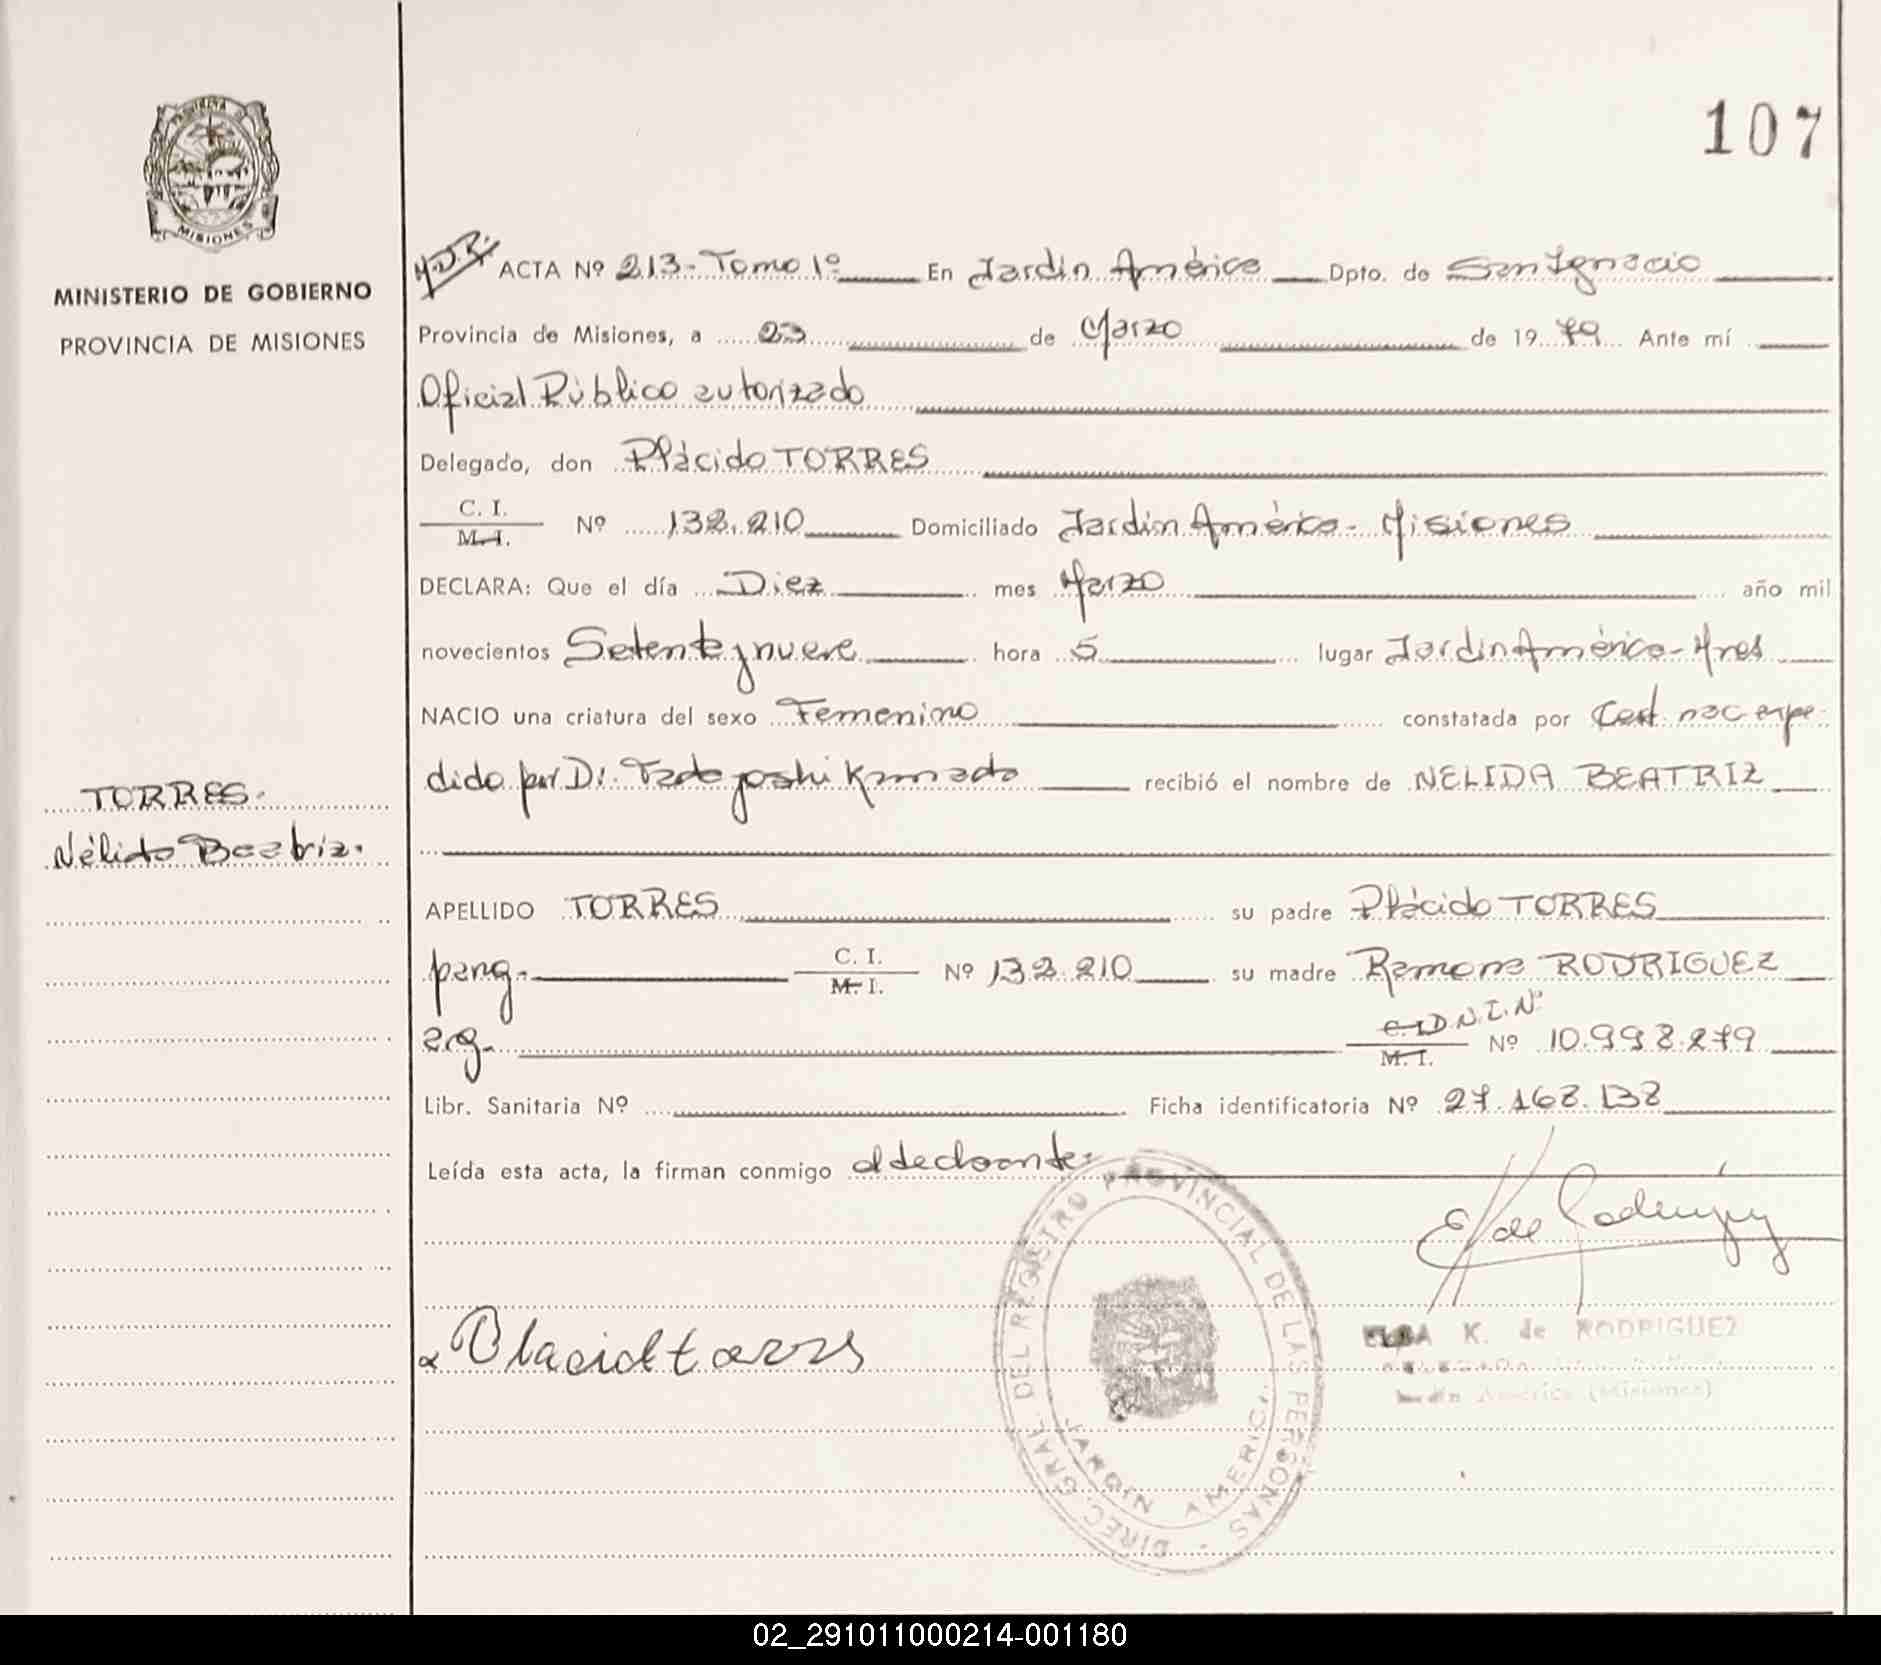 107
MINISTERIO DE GOBIERNO
PROVINCIA DE MISIONES
ACTA Nº 213- Tomo 1º En Jardín América Dpto. de San Ignacio
Provincia de Misiones, a 23 de Marzo de 1979 Ante mí
Oficial Público autorizado
Delegado, don Plácido TORRES
C. I.
M. I. Nº 132.210 Domiciliado Jardín América - Misiones
DECLARA: Que el día Diez mes Marzo año mil
novecientos Setenta y nueve hora 5 lugar Jardín América - Mnes
NACIO una criatura del sexo Femenino constatada por Cert nac expe
dido por Dr. Tadayoshi Kamada recibió el nombre de NELIDA BEATRIZ
TORRES.
Nélida Beatriz.
APELLIDO TORRES su padre Plácido TORRES
parag. C. I.
M. I. Nº 132.210 su madre Ramona RODRIGUEZ
arg. C. I. D.N.I. Nº
M. I. Nº 10.998.279
Libr. Sanitaria Nº Ficha identificatoria Nº 27.168.138
Leída esta acta, la firman conmigo el declarante.
E K de Rodriguez
Placido torres
ELSA K. de RODRIGUEZ
Jardín América (Misiones)
DIREC. GRAL. DEL REGISTRO PROVINCIAL DE LAS PERSONAS
JARDIN AMERICA
MISIONES
02_291011000214-001180